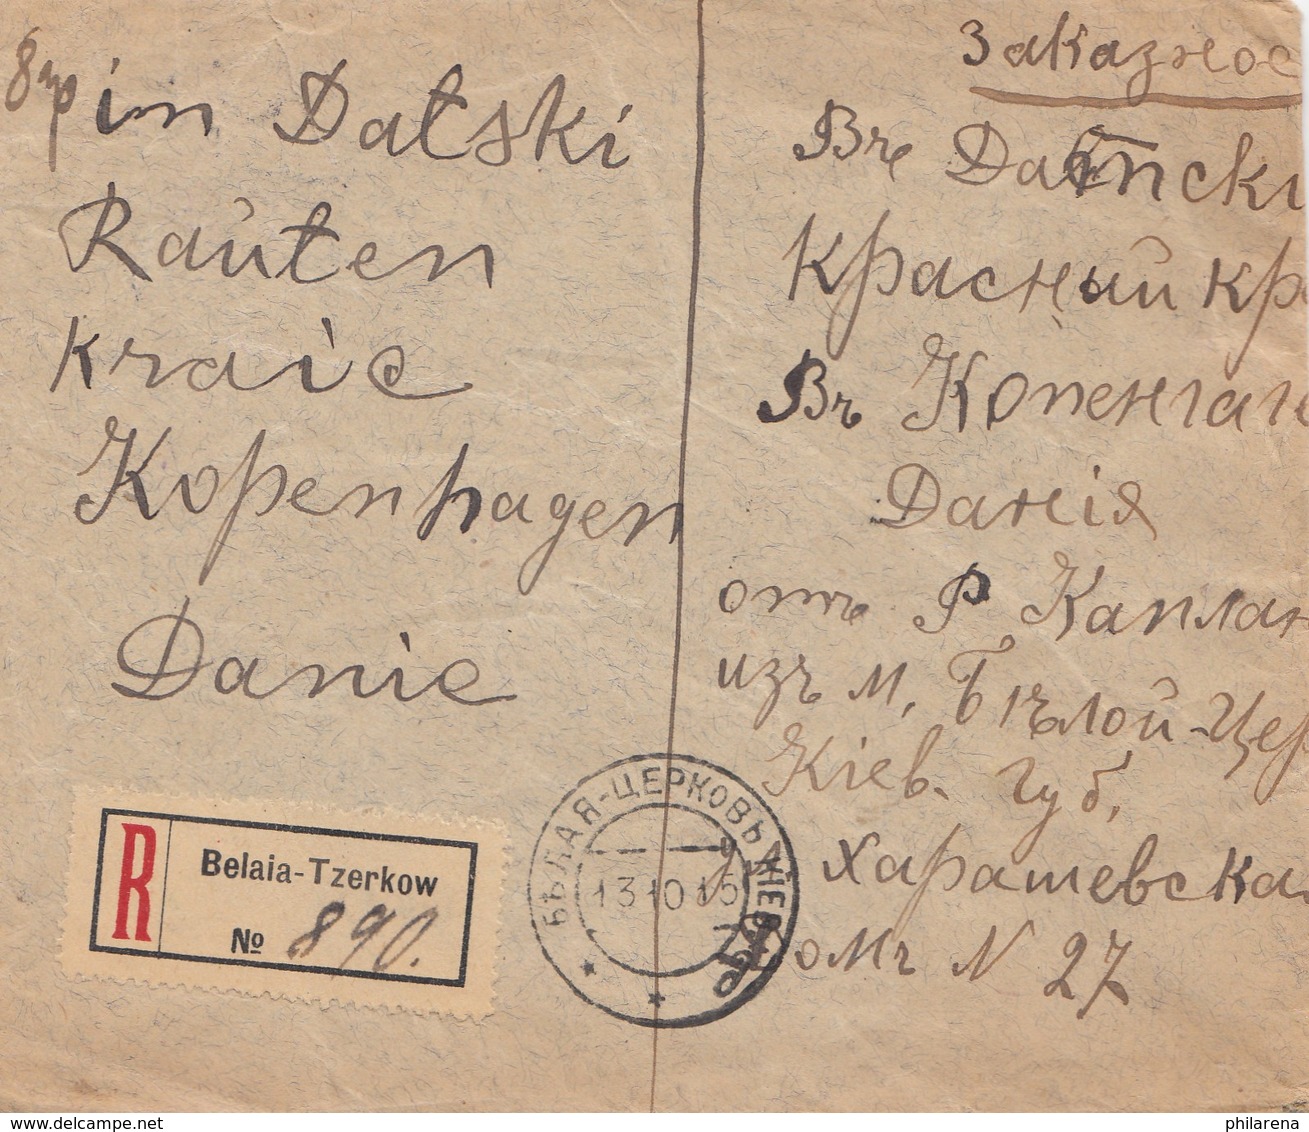 in Datski
Rauten
kraic
Kopenhagen
Danie
Заказное
Въ Датски
красный кр
Въ Копенгаге
Данія
отъ Р. Каплан
изъ м, Бѣлой-Цер
Кіев. губ.
Харашевска
домъ N 27
R
Belaia-Tzerkow
№ 890.
БѢЛАЯ-ЦЕРКОВЬ КІЕВ
13 10 15
philarena